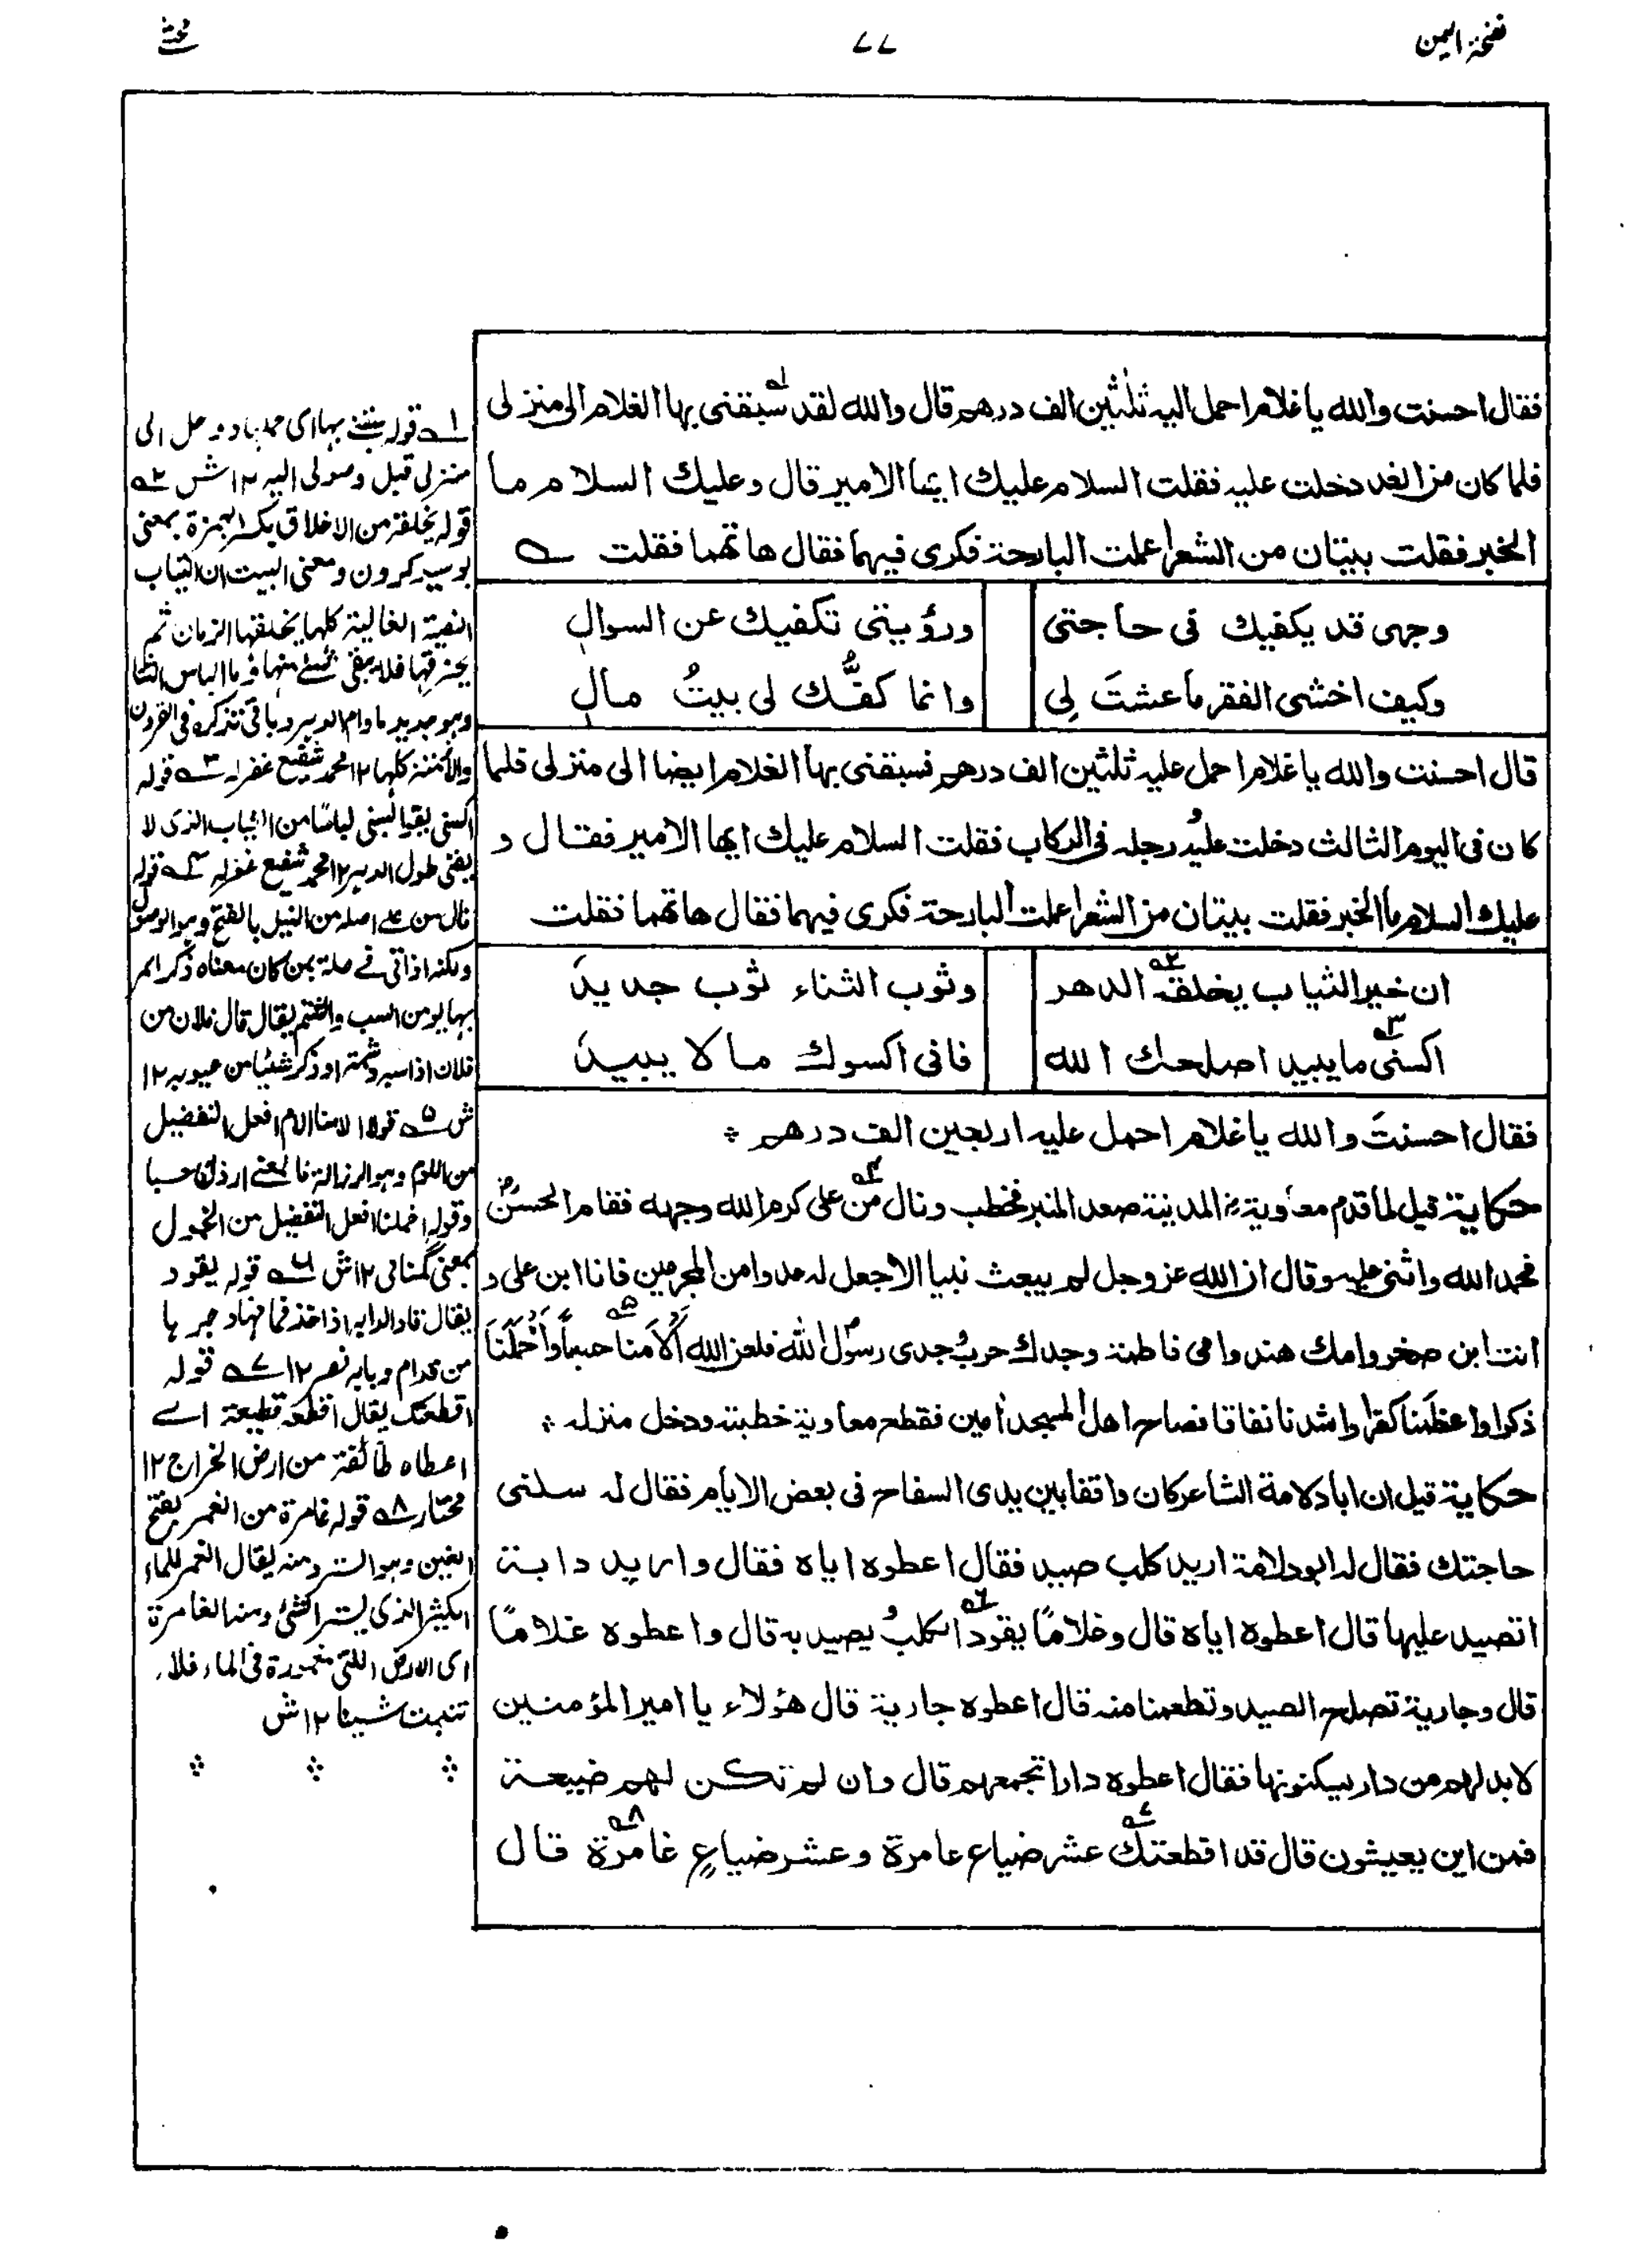 نفحة اليمن
۷۷
فقال احسنت والله يا غلام احمل اليه ثلثين الف درهم قال والله لقد سبقنى بها الغلام الى منزلى
فلما كان من الغد دخلت عليه فقلت السلام عليك ايها الامير قال وعليك السلام ما
الخبر فقلت بيتان من الشعر اعملت البارحة فكرى فيهما فقال هاتهما فقلت
وجهى قد يكفيك فى حاجتى ورؤيتى تكفيك عن السوالِ
وكيف اخشى الفقر ما عشتَ لِى وانما كفُّك لى بيتُ مالِ
قال احسنت والله يا غلام احمل عليه ثلثين الف درهم فسبقنى بها الغلام ايضا الى منزلى فلما
كان فى اليوم الثالث دخلت عليه و رجله فى الركاب فقلت السلام عليك ايها الامير فقال و
عليك السلام ما الخبر فقلت بيتان من الشعر اعملت البارحة فكرى فيهما فقال هاتهما فقلت
ان خير الثياب يخلقه ۲ الدهر وثوب الثناء ثوب جديد
اكسنى ۳ ما يبيد اصلحك الله فانى اكسوك ما لا يبيد
فقال احسنتَ والله يا غلام احمل عليه اربعين الف درهم
حكاية قيل لما قدم معاوية المدينة صعد المنبر فخطب ونال ۴ من على كرم الله وجهه فقام الحسن
فحمد الله واثنى عليه وقال ان الله عز وجل لم يبعث نبيا الا جعل له عدوا من المجرمين فانا ابن على و
انت ابن صخر وامك هند وامى فاطمة وجدك حرب وجدى رسول الله فلعن الله ۵ أَلأَمنا حسباً وأَخمَلَنَا
ذكرا واعظمنا كفرا واشدنا نفاقا فصاح اهل المسجد اٰمين فقطع معاوية خطبته ودخل منزله
حكاية قيل ان ابا دلامة الشاعر كان واقفا بين يدى السفاح فى بعض الايام فقال له سلنى
حاجتك فقال له ابو دلامة اريد كلب صيد فقال اعطوه اياه فقال واريد دابة
اتصيد عليها قال اعطوه اياه قال وغلامًا يقود ۶ الكلب و يصيد به قال واعطوه غلامًا
قال وجارية تصلح الصيد وتطعمنا منه قال اعطوه جارية قال هؤلاء يا امير المؤمنين
لا بد لهم من دار يسكنونها فقال اعطوه دارا تجمعهم قال وان لم تكن لهم ضيعة
فمن اين يعيشون قال قد اقطعتك ۷ عشر ضياع عامرة وعشر ضياعٍ غامرة ۸ قال
۱ قوله بها اى
منزلى قبل وصولى اليه ۱۲ ش ۲
قوله يخلقه من الاخلاق بكسر الهمزة بمعنى
بوسيده كرون ومعنى البيت ان الثياب
الغالية كلها يخلقها الزمان ثم
يحزقها فلا يبقى شئ منها
وهو جديد مادام الدهر و باقى تذكره فى القرون
والازمنة كلها ۱۲ محمد شفيع غفرله ۳ قوله
اكسنى لباسا من الثياب الذى لا
يفنى طول الدهر ۱۲ محمد شفيع غفرله ۴ قوله
نال من على اصله من النيل بالفتح وهو الوصول
ولكنه اذا اتى فى صلة من كان معناه ذكر امر
بها يؤمن السب والشتم يقال نال فلان من
فلان اذا سبه وشتمه او ذكر شيئا من عيوبه ۱۲
ش ۵ قوله الامنا الام افعل التفضيل
من اللوم وهو الرزالة فالمعنى ارذلنا حسبا
وقوله اخملنا افعل التفضيل من الخمول
بمعنى گمنامى ۱۲ ش ۶ قوله يقود
يقال قاد الدابه اذا اخذ فمها وجرها
من قدام وبابه نصر ۱۲ ۷ قوله
اقطعتك يقال اقطعه قطيعة اے
اعطاه طائفة من ارض الخراج ۱۲
مختار ۸ قوله غامرة من الغمر بفتح
الغين وهو الستر ومنه يقال الغمر للماء
الكثير الذى يستر الشئ ومنه الغامرة
اى الارض اللتى مغمورة فى الماء فلا
تنبت شيئا ۱۲ ش